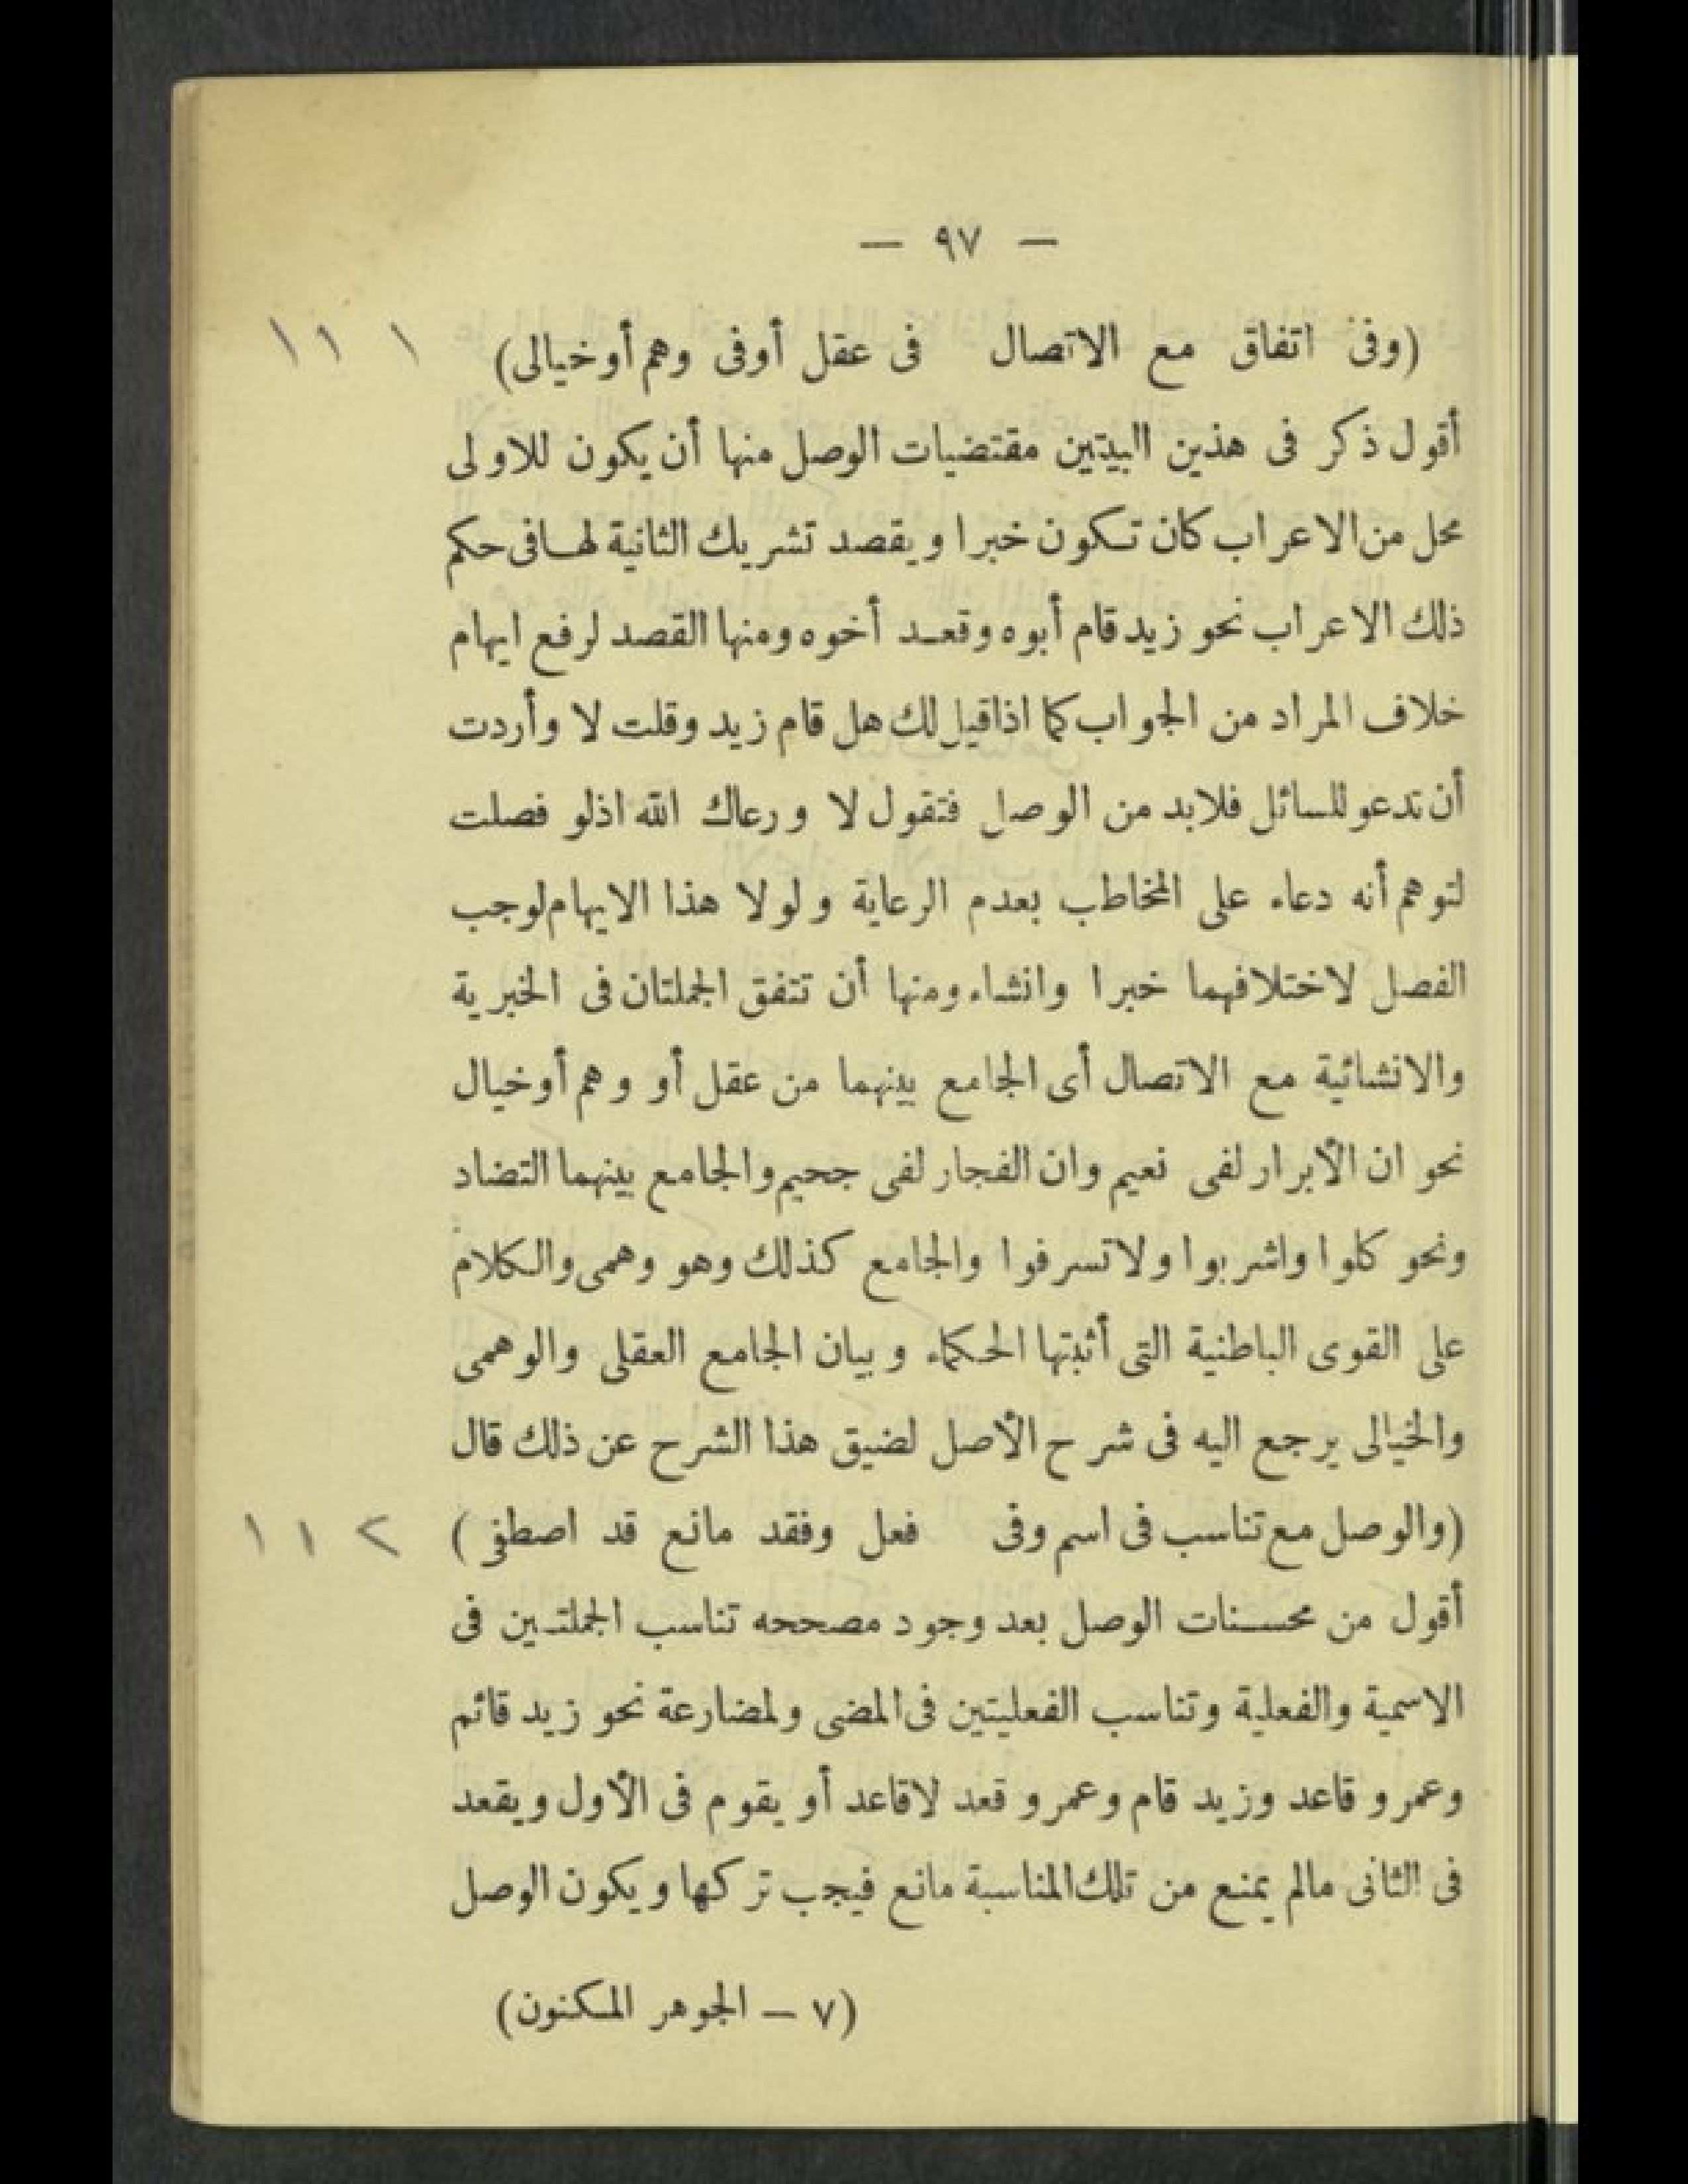 — ٩٧ —
(وفى اتفاق مع الاتصال فى عقل أوفى وهم أو خيالى) ١١١
أقول ذكر فى هذين البيتين مقتضيات الوصل منها أن يكون للاولى
محل من الاعراب كان تكون خبرا ويقصد تشريك الثانية لها فى حكم
ذلك الاعراب نحو زيد قام أبوه وقعد أخوه ومنها القصد لرفع ايهام
خلاف المراد من الجواب كما اذا قيل لك هل قام زيد وقلت لا وأردت
أن تدعو للسائل فلابد من الوصل فتقول لا ورعاك الله اذلو فصلت
لتوهم أنه دعاء على المخاطب بعدم الرعاية ولولا هذا الايهام لوجب
الفصل لاختلافهما خبرا وانشاء ومنها أن تتفق الجملتان فى الخبرية
والانشائية مع الاتصال أى الجامع بينهما من عقل أو وهم أو خيال
نحو ان الأبرار لفى نعيم وان الفجار لفى جحيم والجامع بينهما التضاد
ونحو كلوا واشربوا ولا تسرفوا والجامع كذلك وهو وهمى والكلام
على القوى الباطنية التى أثبتها الحكماء وبيان الجامع العقلى والوهمى
والخيالى يرجع اليه فى شرح الأصل لضيق هذا الشرح عن ذلك قال
(والوصل مع تناسب فى اسم وفى فعل وفقد مانع قد اصطفى) ١١٢
أقول من محسنات الوصل بعد وجود مصححه تناسب الجملتين فى
الاسمية والفعلية وتناسب الفعليتين فى المضى ولمضارعة نحو زيد قائم
وعمرو قاعد وزيد قام وعمرو قعد لاقاعد أو يقوم فى الأول ويقعد
فى الثانى مالم يمنع من تلك المناسبة مانع فيجب تركها ويكون الوصل
(٧ — الجوهر المكنون)